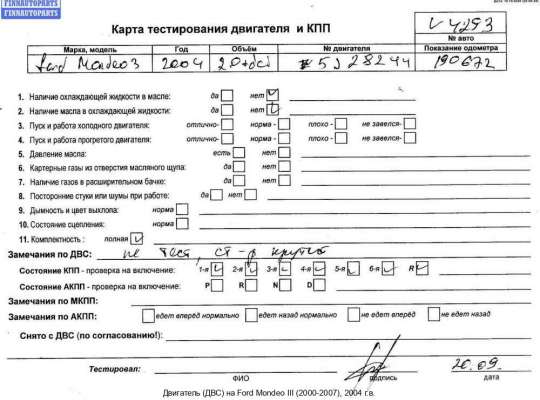 FINNAUTOPARTS
FINNAUTOPARTS
Карта тестирования двигателя и КПП
V4293
№ авто
Марка, модель Год Объём № двигателя Показание одометра
Ford Mondeo3 2004 2,0tdci 5J28244 190672
1. Наличие охлаждающей жидкости в масле: да нет
2. Наличие масла в охлаждающей жидкости: да нет
3. Пуск и работа холодного двигателя: отлично- норма - плохо - не завелся-
4. Пуск и работа прогретого двигателя: отлично- норма - плохо - не завелся-
5. Давление масла: есть нет
6. Картерные газы из отверстия масляного щупа: да нет
7. Наличие газов в расширительном бачке: да нет
8. Посторонние стуки или шумы при работе: да нет
9. Дымность и цвет выхлопа: норма
10. Состояние сцепления: норма
11. Комплектность : полная
Замечания по ДВС: не тест, ст-р крутит
Состояние КПП - проверка на включение: 1-я 2-я 3-я 4-я 5-я 6-я R
Состояние АКПП - проверка на включение: P R N D
Замечания по МКПП:
Замечания по АКПП: едет вперёд нормально едет назад нормально не едет вперёд не едет назад
Снято с ДВС (по согласованию!):
Тестировал: 20.09.
ФИО подпись дата
Двигатель (ДВС) на Ford Mondeo III (2000-2007), 2004 г.в.